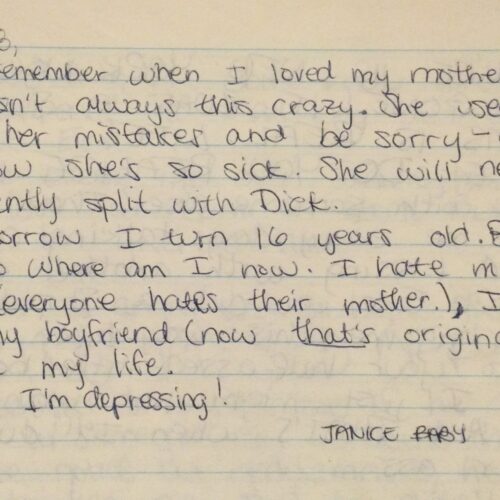 B,
emember when I loved my mothe
sn't always this crazy. She use
her mistakes and be sorry -
ow she's so sick. She will ne
ently split with Dick.
orrow I turn 16 years old. B
o where am I now. I hate m
(everyone hates their mother.), I
ny boyfriend (now that's origina
o my life.
I'm depressing!
JANICE BABY